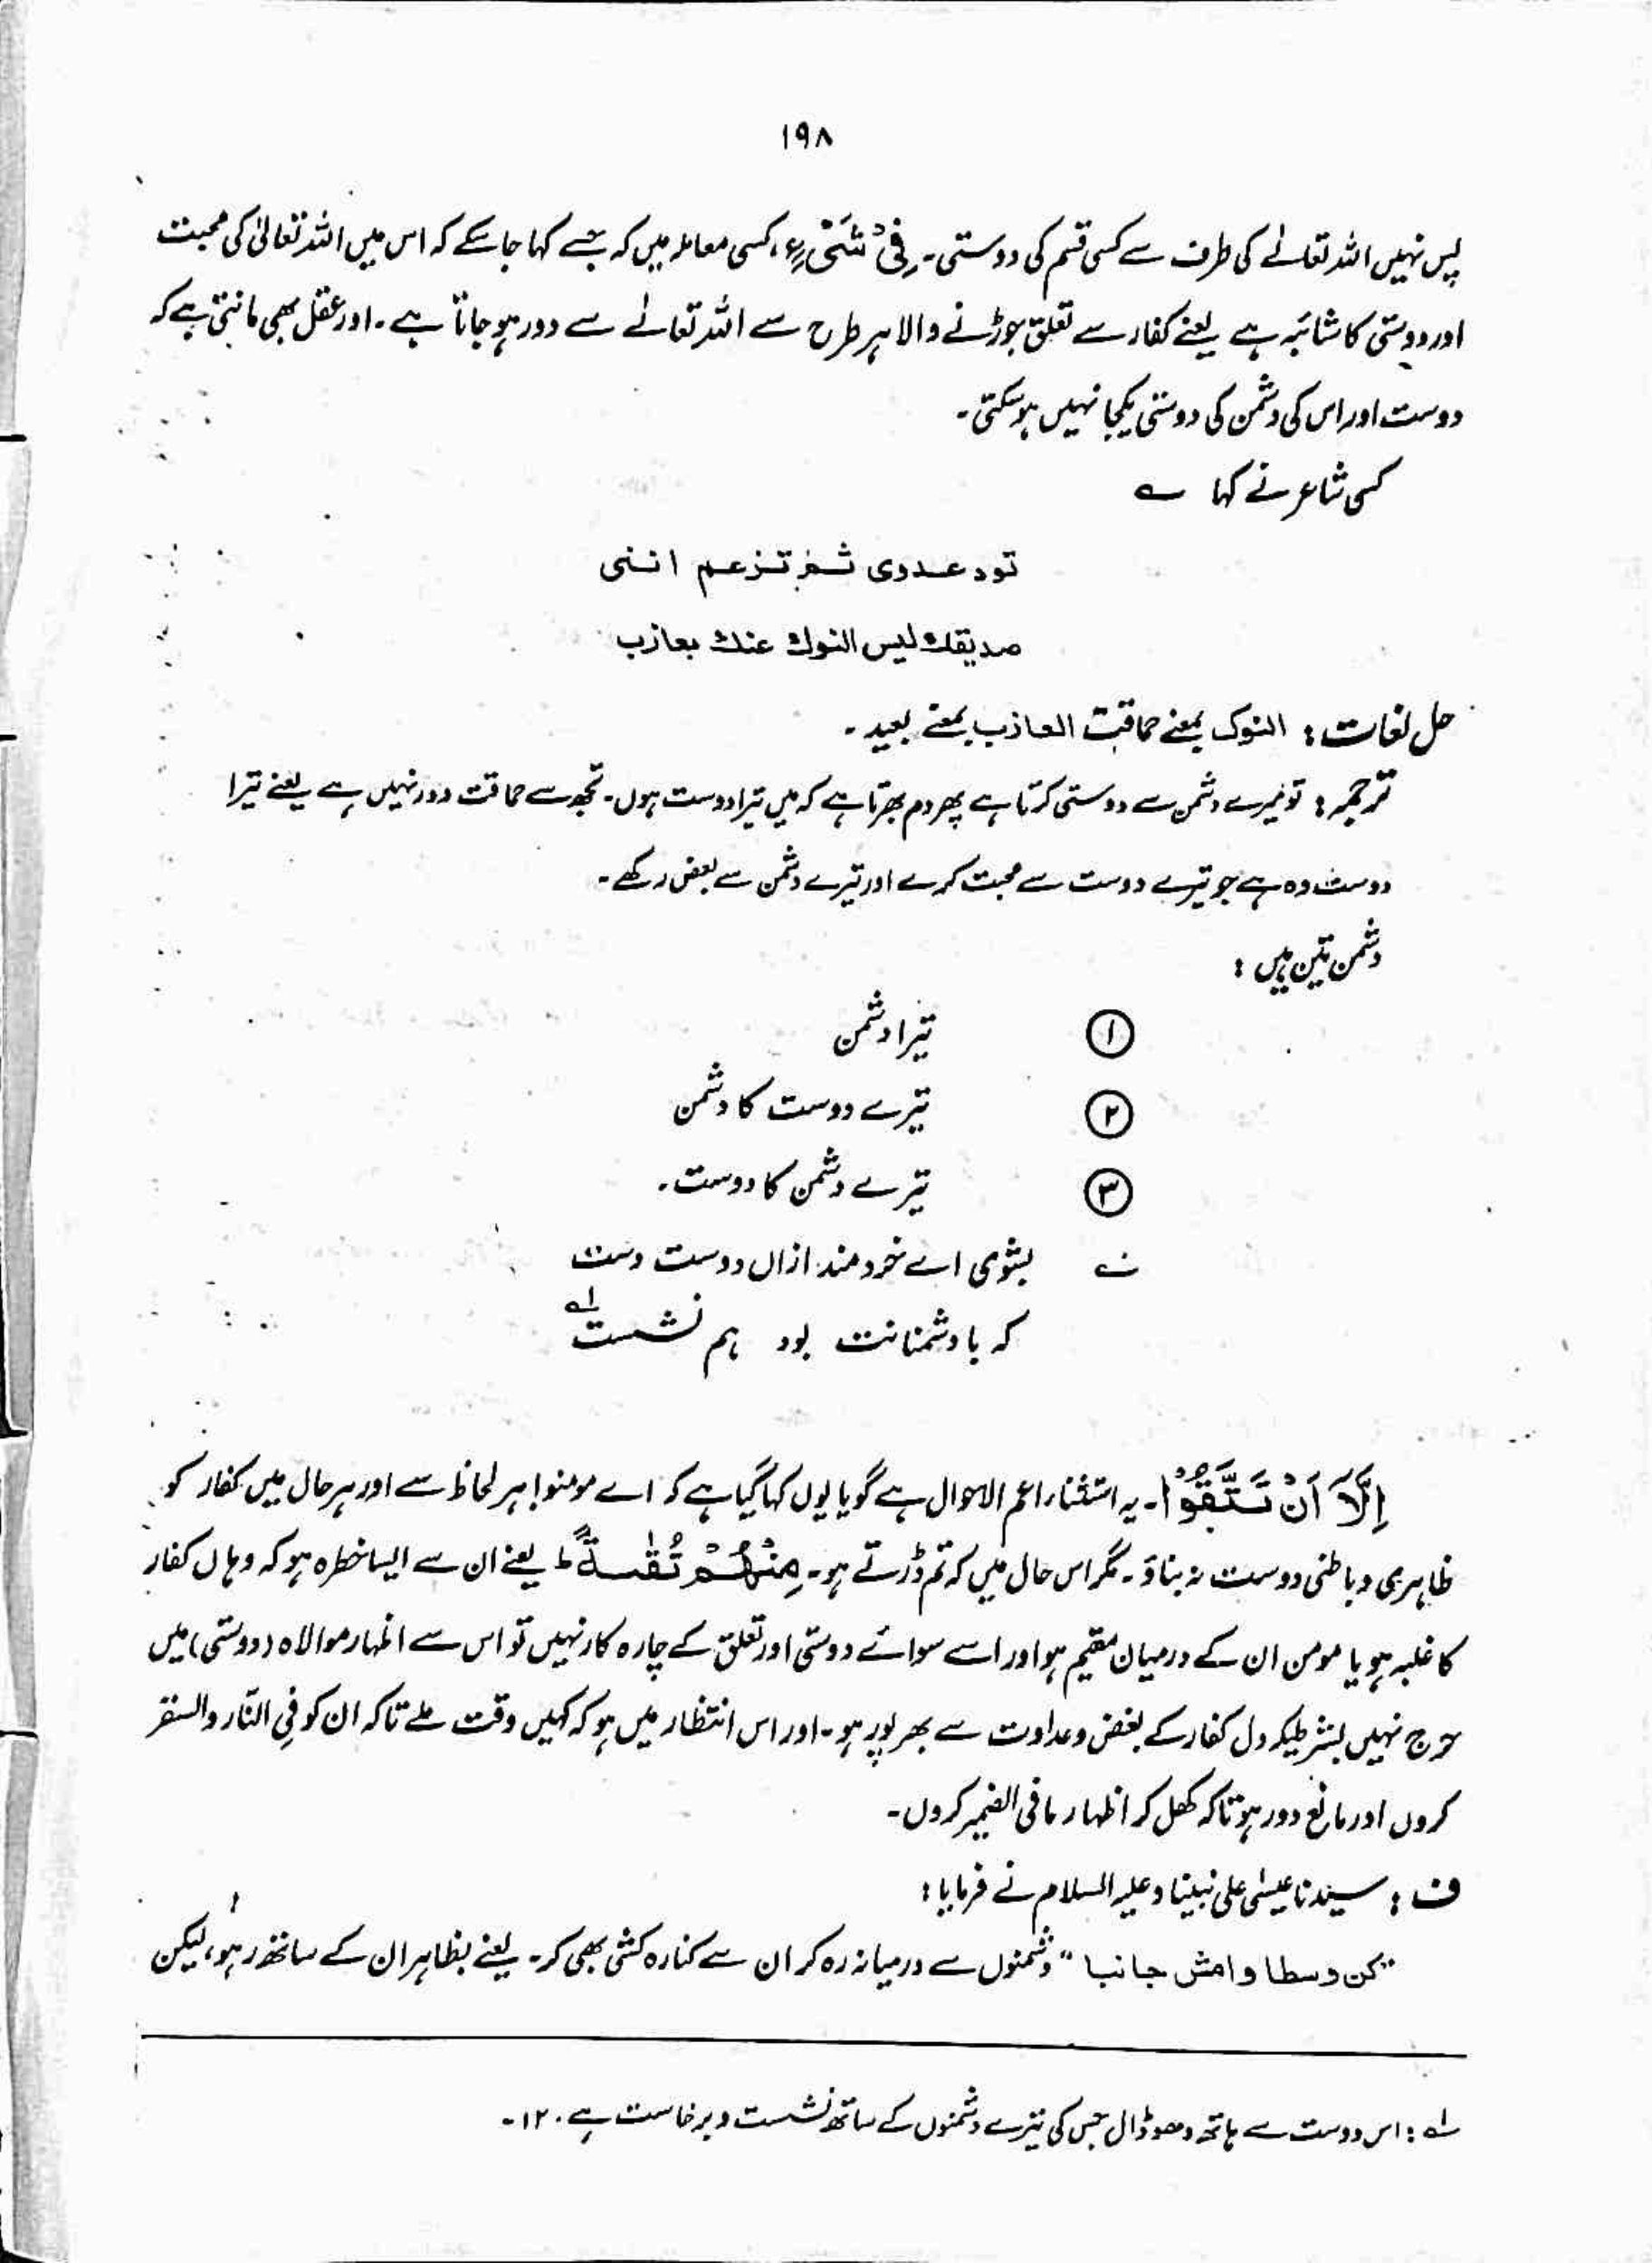 ۱۹۸
پس نہیں اللہ تعالےٰ کی طرف سے کسی قسم کی دوستی۔ فِیْ شَیْءٍ، کسی معاملہ میں کہ جسے کہا جا سکے کہ اس میں اللہ تعالیٰ کی محبت
اور دوستی کا شائبہ ہے یعنے کفار سے تعلق جوڑنے والا ہر طرح سے اللہ تعالےٰ سے دور ہو جاتا ہے۔ اور عقل بھی مانتی ہے کہ
دوست اور اس کی دشمن کی دوستی یکجا نہیں ہو سکتی۔
کسی شاعر نے کہا ؎
تود عدوی ثم تزعم اننی
صدیقك لیس النوك عنك بعازب
حل لغات : النوک بمعنے حماقت العاذب بمعنے بعید۔
ترجمہ : تو میرے دشمن سے دوستی کرتا ہے پھر دم بھرتا ہے کہ میں تیرا دوست ہوں۔ تجھ سے حماقت دور نہیں ہے یعنے تیرا
دوست وہ ہے جو تیرے دوست سے محبت کرے اور تیرے دشمن سے بغض رکھے۔
دشمن تین ہیں :
① تیرا دشمن
② تیرے دوست کا دشمن
③ تیرے دشمن کا دوست۔
؎ بشوی اے خردمند ازاں دوست دست
کہ با دشمنانت بود ہم نشست لہ
اِلَّآ اَنْ تَتَّقُوْا۔ یہ استثناء اعم الاحوال ہے گویا یوں کہا گیا ہے کہ اے مومنو! ہر لحاظ سے اور ہر حال میں کفار کو
ظاہری و باطنی دوست نہ بناؤ۔ مگر اس حال میں کہ تم ڈرتے ہو۔ مِنْھُمْ تُقٰىةً ط یعنے ان سے ایسا خطرہ ہو کہ وہاں کفار
کا غلبہ ہو یا مومن ان کے درمیان مقیم ہو اور اسے سوائے دوستی اور تعلق کے چارہ کار نہیں تو اس سے اظہار موالاہ (دوستی) میں
حرج نہیں بشرطیکہ دل کفار کے بغض و عداوت سے بھر پور ہو۔ اور اس انتظار میں ہو کہ کہیں وقت ملے تاکہ ان کو فی النّار والسقر
کروں اور مانع دور ہو تاکہ کھل کر اظہار مافی الضمیر کروں۔
ف : سیدنا عیسٰی علیٰ نبینا و علیہ السلام نے فرمایا :
"کن وسطا وامش جانبا" دشمنوں سے درمیانہ رہ کر ان سے کنارہ کشی بھی کر۔ یعنے بظاہر ان کے ساتھ رہو، لیکن
لہ : اس دوست سے ہاتھ دھو ڈال جس کی تیرے دشمنوں کے ساتھ نشست و برخاست ہے۔ ۱۲۔